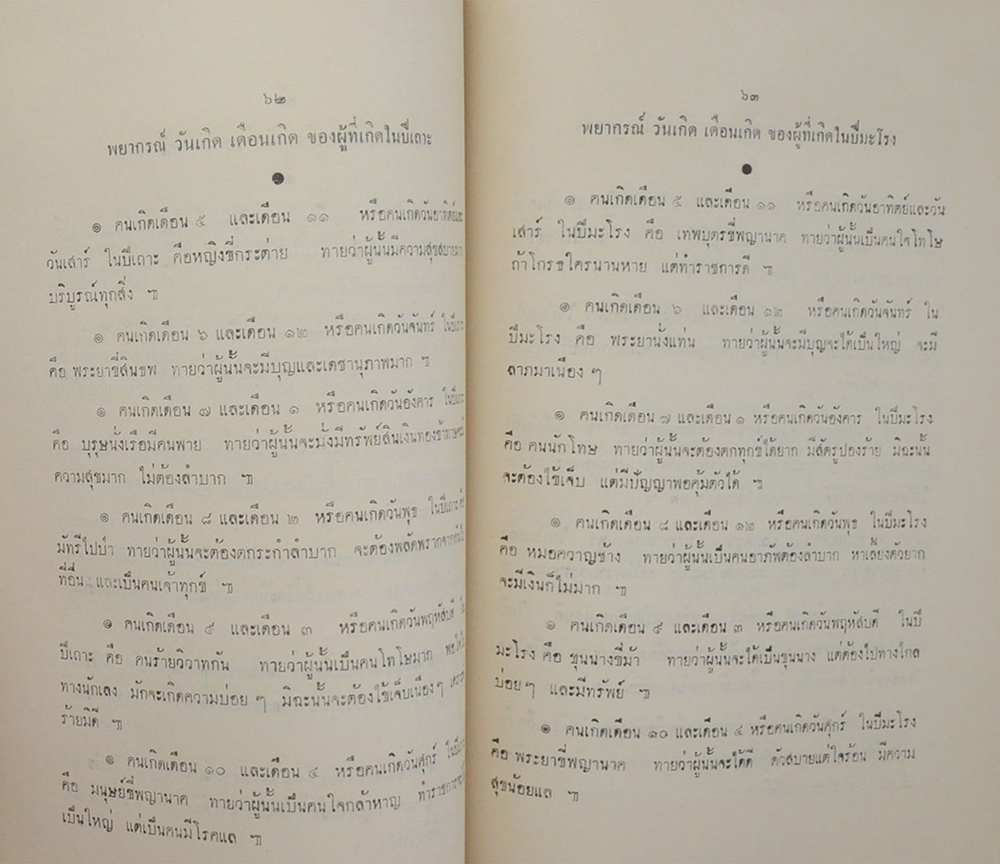 ๖๒
พยากรณ์ วันเกิด เดือนเกิด ของผู้ที่เกิดในปีเถาะ
๏ คนเกิดเดือน ๕ และเดือน ๑๑ หรือคนเกิดวันอาทิตย์และ
วันเสาร์ ในปีเถาะ คือหญิงขี่กระต่าย ทายว่าผู้นั้นมีความสุขสบาย
บริบูรณ์ทุกสิ่ง ฯ
๏ คนเกิดเดือน ๖ และเดือน ๑๒ หรือคนเกิดวันจันทร์ ในปีเถาะ
คือ พระยาขี่สินธพ ทายว่าผู้นั้นจะมีบุญและเดชานุภาพมาก ฯ
๏ คนเกิดเดือน ๗ และเดือน ๑ หรือคนเกิดวันอังคาร ในปีเถาะ
คือ บุรุษนั่งเรือมีคนพาย ทายว่าผู้นั้นจะมั่งมีทรัพย์สินเงินทองข้าทาษ
ความสุขมาก ไม่ต้องลำบาก ฯ
๏ คนเกิดเดือน ๘ และเดือน ๒ หรือคนเกิดวันพุธ ในปีเถาะ
มัทรีไปป่า ทายว่าผู้นั้นจะต้องตกระกำลำบาก จะต้องพลัดพรากจาก
ที่อื่น และเป็นคนเจ้าทุกข์ ฯ
๏ คนเกิดเดือน ๙ และเดือน ๓ หรือคนเกิดวันพฤหัสบดี ใน
ปีเถาะ คือ คนร้ายวิวาทกัน ทายว่าผู้นั้นเป็นคนโทโษมาก พอใจ
ทางนักเลง มักจะเกิดความบ่อย ๆ มิฉะนั้นจะต้องไข้เจ็บเนือง ๆ เคราะห์
ร้ายมิดี ฯ
๏ คนเกิดเดือน ๑๐ และเดือน ๔ หรือคนเกิดวันศุกร์ ในปีเถาะ
คือ มนุษย์ขี่พญานาค ทายว่าผู้นั้นเป็นคนใจกล้าหาญ ทำราชการ
เป็นใหญ่ แต่เป็นคนมีโรคแล ฯ
๖๓
พยากรณ์ วันเกิด เดือนเกิด ของผู้ที่เกิดในปีมะโรง
๏ คนเกิดเดือน ๕ และเดือน ๑๑ หรือคนเกิดวันอาทิตย์และวัน
เสาร์ ในปีมะโรง คือ เทพบุตรขี่พญานาค ทายว่าผู้นั้นเป็นคนใจโทโษ
ถ้าโกรธใครนานหาย แต่ทำราชการดี ฯ
๏ คนเกิดเดือน ๖ และเดือน ๑๒ หรือคนเกิดวันจันทร์ ใน
ปีมะโรง คือ พระยานั่งแท่น ทายว่าผู้นั้นจะมีบุญจะได้เป็นใหญ่ จะมี
ลาภมาเนือง ๆ
๏ คนเกิดเดือน ๗ และเดือน ๑ หรือคนเกิดวันอังคาร ในปีมะโรง
คือ คนนักโทษ ทายว่าผู้นั้นจะต้องตกทุกข์ได้ยาก มีสัตรูปองร้าย มิฉะนั้น
จะต้องไข้เจ็บ แต่มีปัญญาพอคุ้มตัวได้ ฯ
๏ คนเกิดเดือน ๘ และเดือน ๑๒ หรือคนเกิดวันพุธ ในปีมะโรง
คือ หมอควาญช้าง ทายว่าผู้นั้นเป็นคนอาภัพต้องลำบาก หาเลี้ยงตัวยาก
จะมีเงินก็ไม่มาก ฯ
๏ คนเกิดเดือน ๙ และเดือน ๓ หรือคนเกิดวันพฤหัสบดี ในปี
มะโรง คือ ขุนนางขี่ม้า ทายว่าผู้นั้นจะได้เป็นขุนนาง แต่ต้องไปทางไกล
บ่อยๆ และมีทรัพย์ ฯ
๏ คนเกิดเดือน ๑๐ และเดือน ๔ หรือคนเกิดวันศุกร์ ในปีมะโรง
คือ พระยาขี่พญานาค ทายว่าผู้นั้นจะได้ดี ตัวสบายแต่ใจร้อน มีความ
สุขน้อยแล ฯ